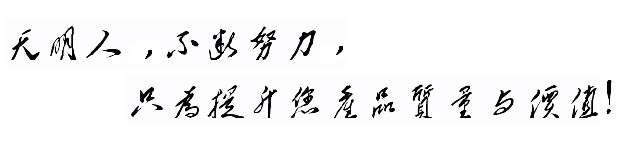 天明人，不断努力，
只為提升您產品質量与價值！